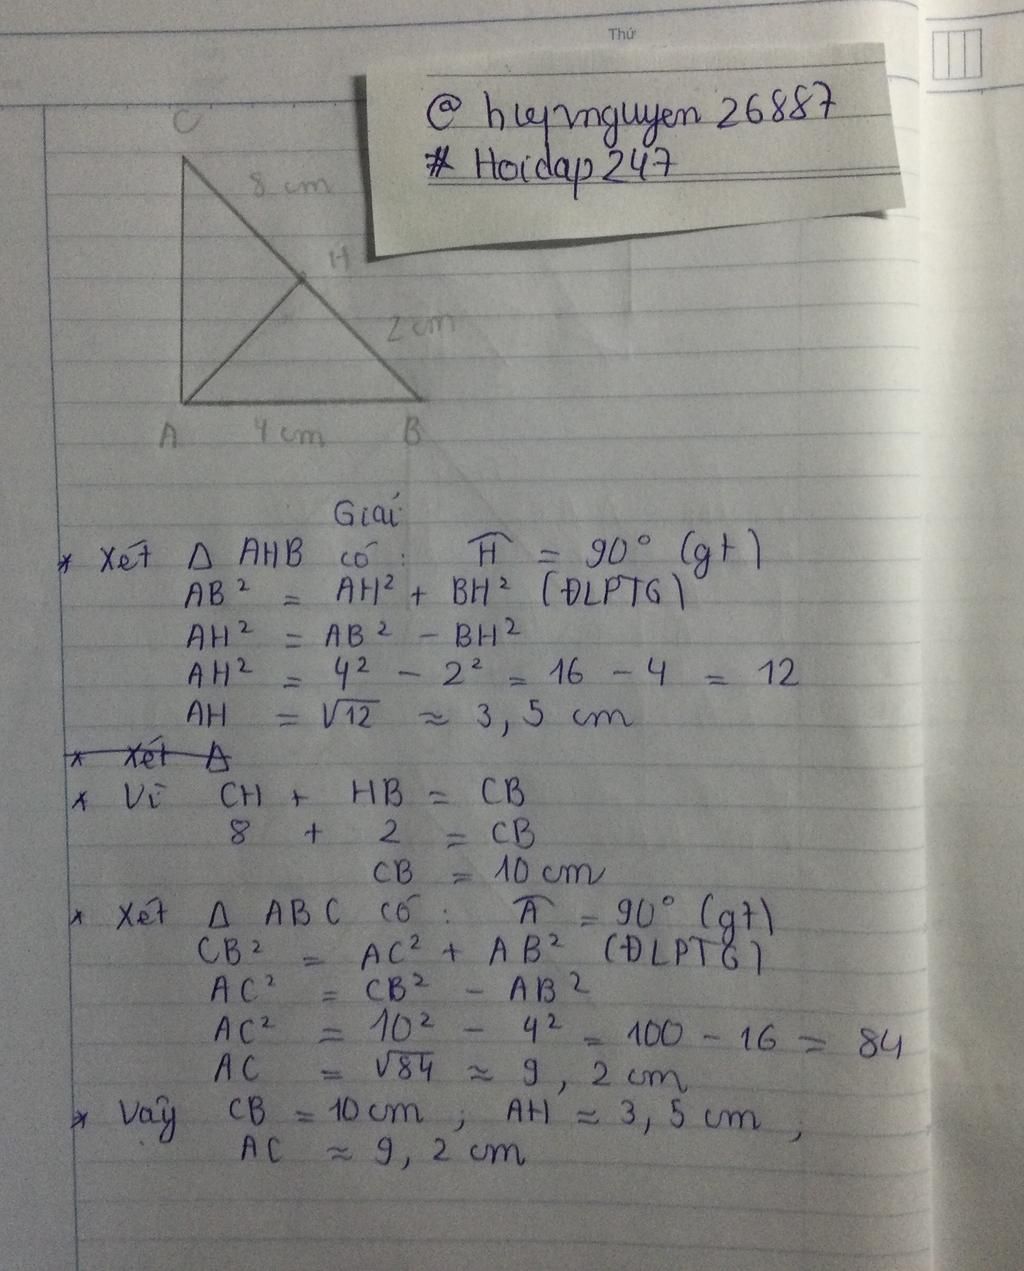 Thứ
@ huynguyen 26887
# Hoidap247
C
8 cm
H
2 cm
A 4 cm B
Giải
* Xét Δ AHB có : Ĥ = 90° (gt)
AB² = AH² + BH² (ĐLPTG)
AH² = AB² - BH²
AH² = 4² - 2² = 16 - 4 = 12
AH = √12 ≈ 3,5 cm
* Xét Δ
* Vì CH + HB = CB
8 + 2 = CB
CB = 10 cm
* Xét Δ ABC có : Â = 90° (gt)
CB² = AC² + AB² (ĐLPTG)
AC² = CB² - AB²
AC² = 10² - 4² = 100 - 16 = 84
AC = √84 ≈ 9,2 cm
* Vậy CB = 10 cm ; AH ≈ 3,5 cm ;
AC ≈ 9,2 cm